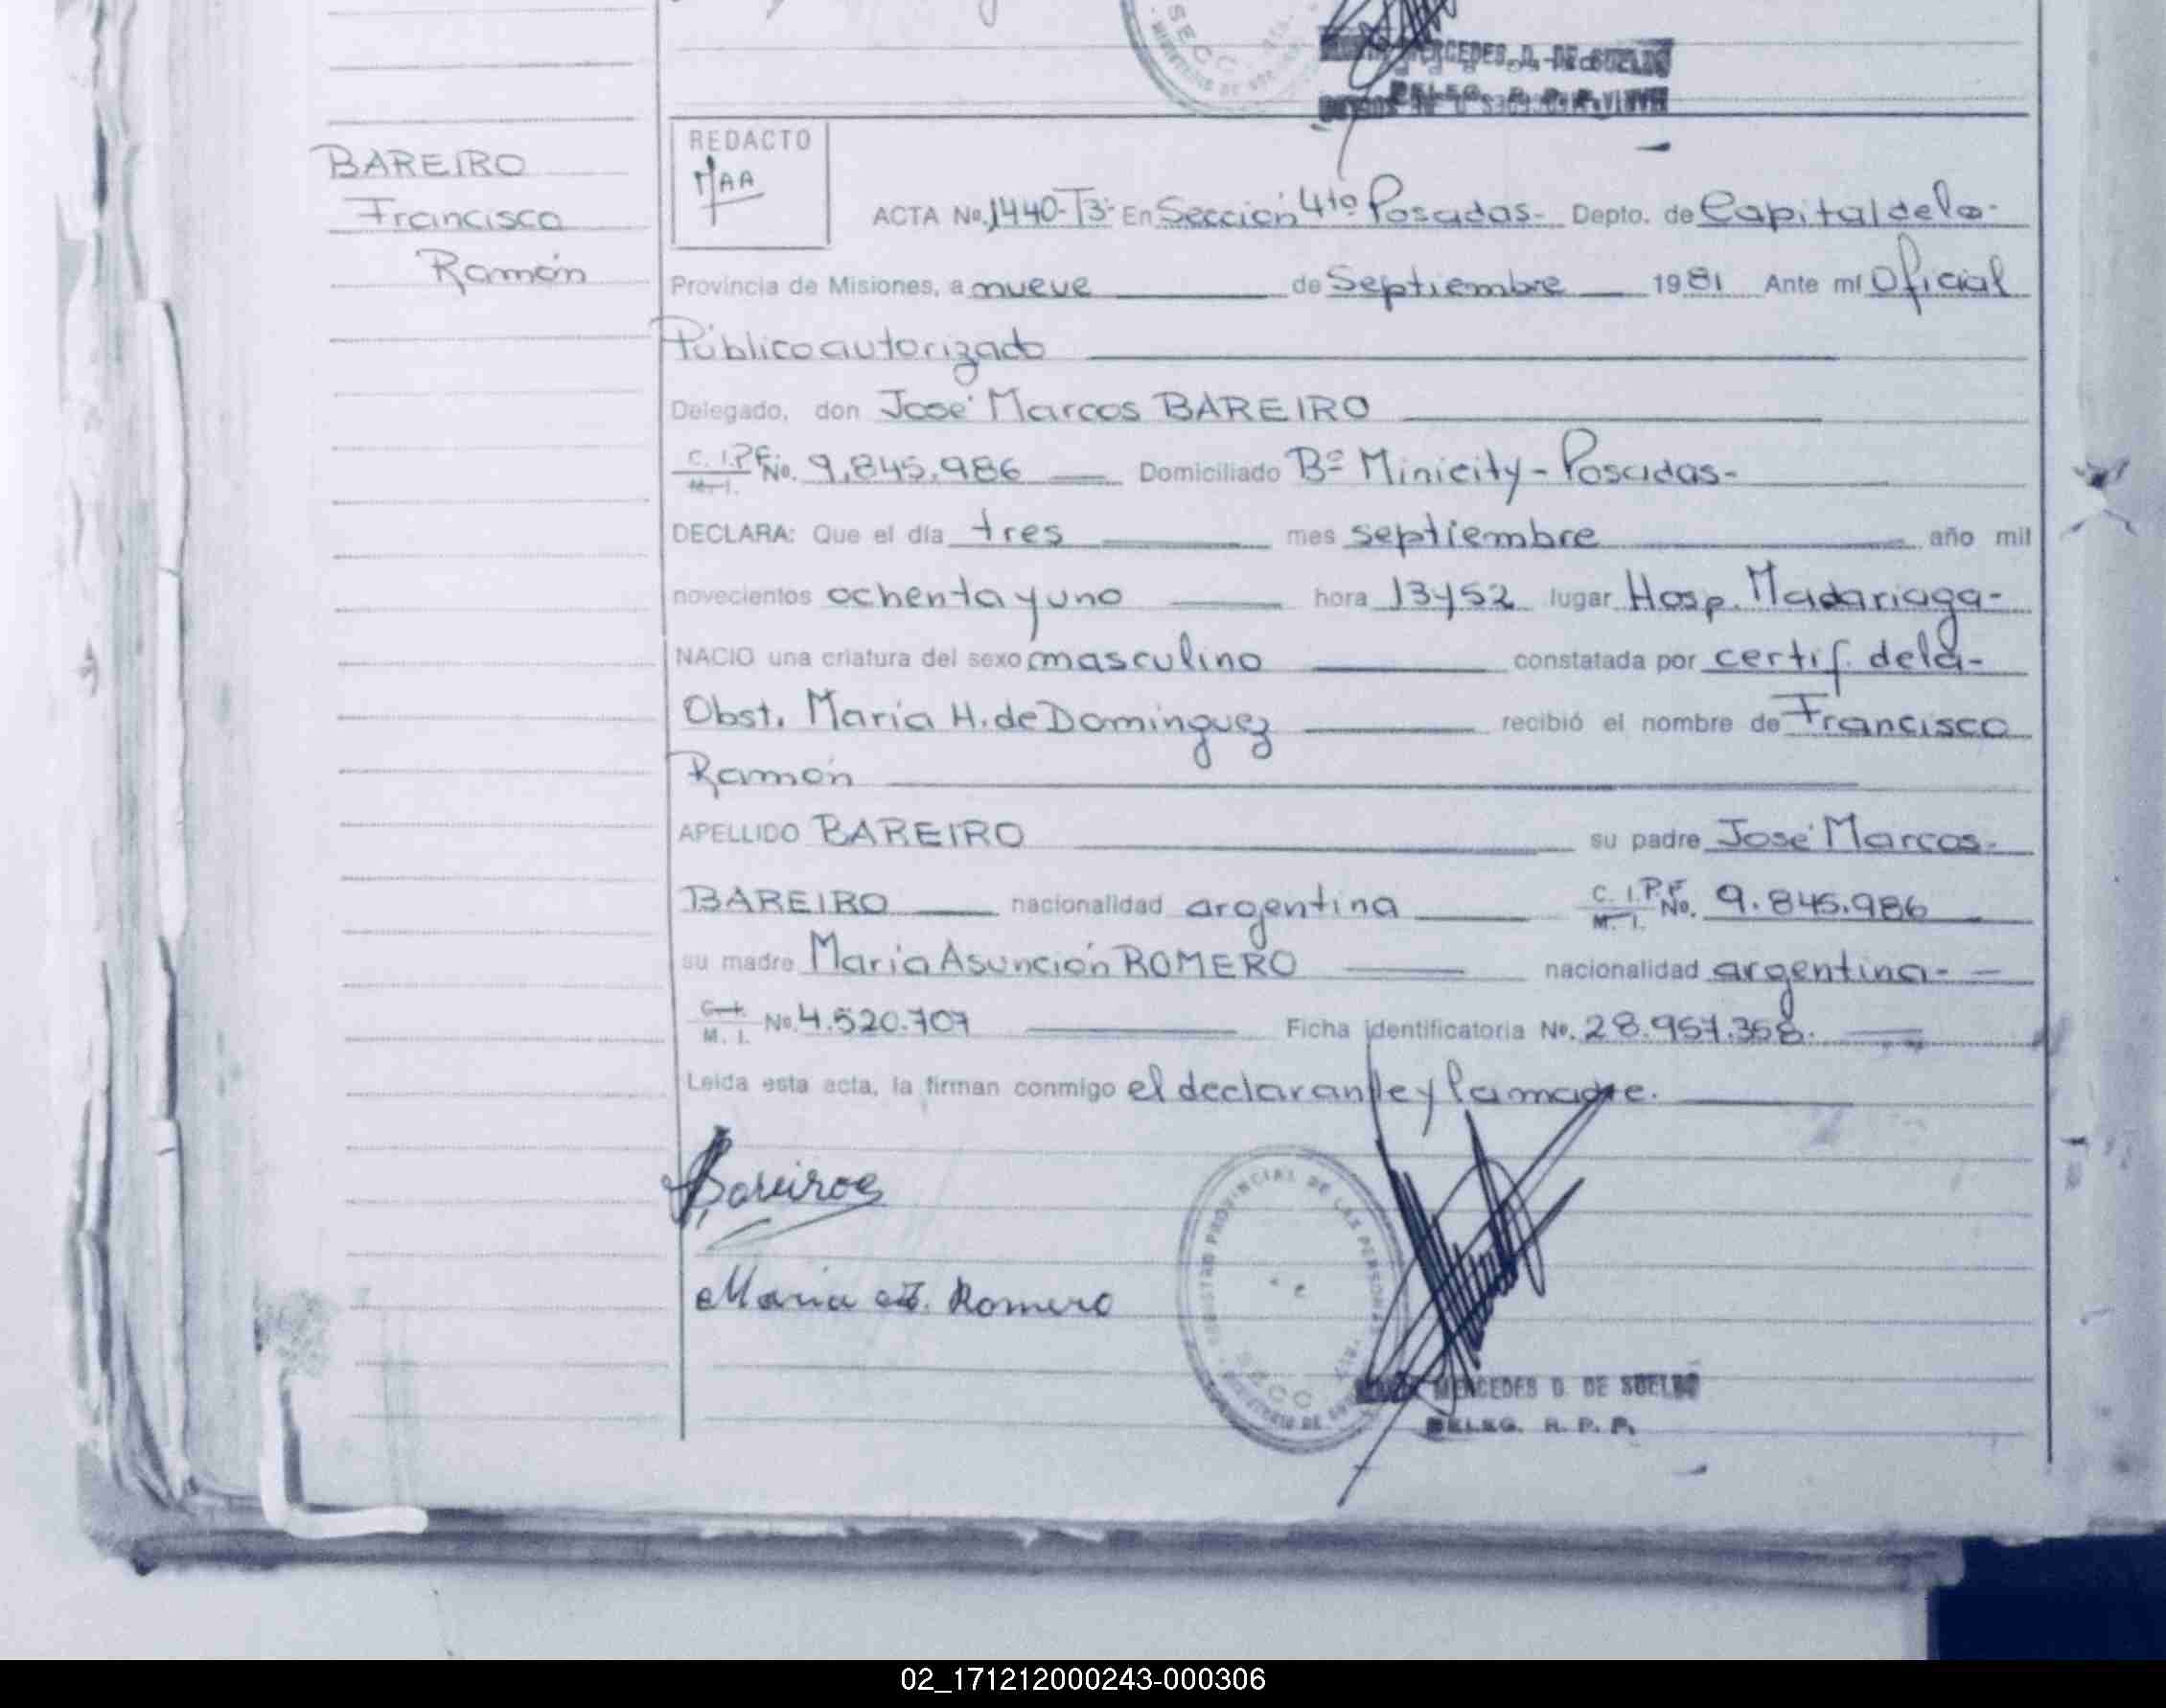 MERCEDES D. DE SUELDO
DELEG. R. P. P.
BAREIRO
Francisco
Ramón
REDACTO
MAA
ACTA No. 1440-T3- En Sección 4ta Posadas- Depto. de Capital de la-
Provincia de Misiones, a nueve de Septiembre 1981 Ante mí Oficial
Público autorizado
Delegado, don José Marcos BAREIRO
C. I. P.F. No. 9.845.986 Domiciliado Bº Minicity - Posadas-
M. I.
DECLARA: Que el día tres mes septiembre año mil
novecientos ochenta y uno hora 13y52 lugar Hosp. Madariaga-
NACIO una criatura del sexo masculino constatada por certif. de la-
Obst. María H. de Dominguez recibió el nombre de Francisco
Ramón
APELLIDO BAREIRO su padre José Marcos-
BAREIRO nacionalidad argentina C. I. P.F. No. 9.845.986
M. I.
su madre María Asunción ROMERO nacionalidad argentina-
C. I.
M. I. No. 4.520.707 Ficha identificatoria No. 28.957.358.
Leida esta acta, la firman conmigo el declarante y la madre.
Bareiro
Maria A. Romero
REGISTRO PROVINCIAL DE LAS PERSONAS
SECC. 4ta.
MERCEDES D. DE SUELDO
DELEG. R. P. P.
02_171212000243-000306